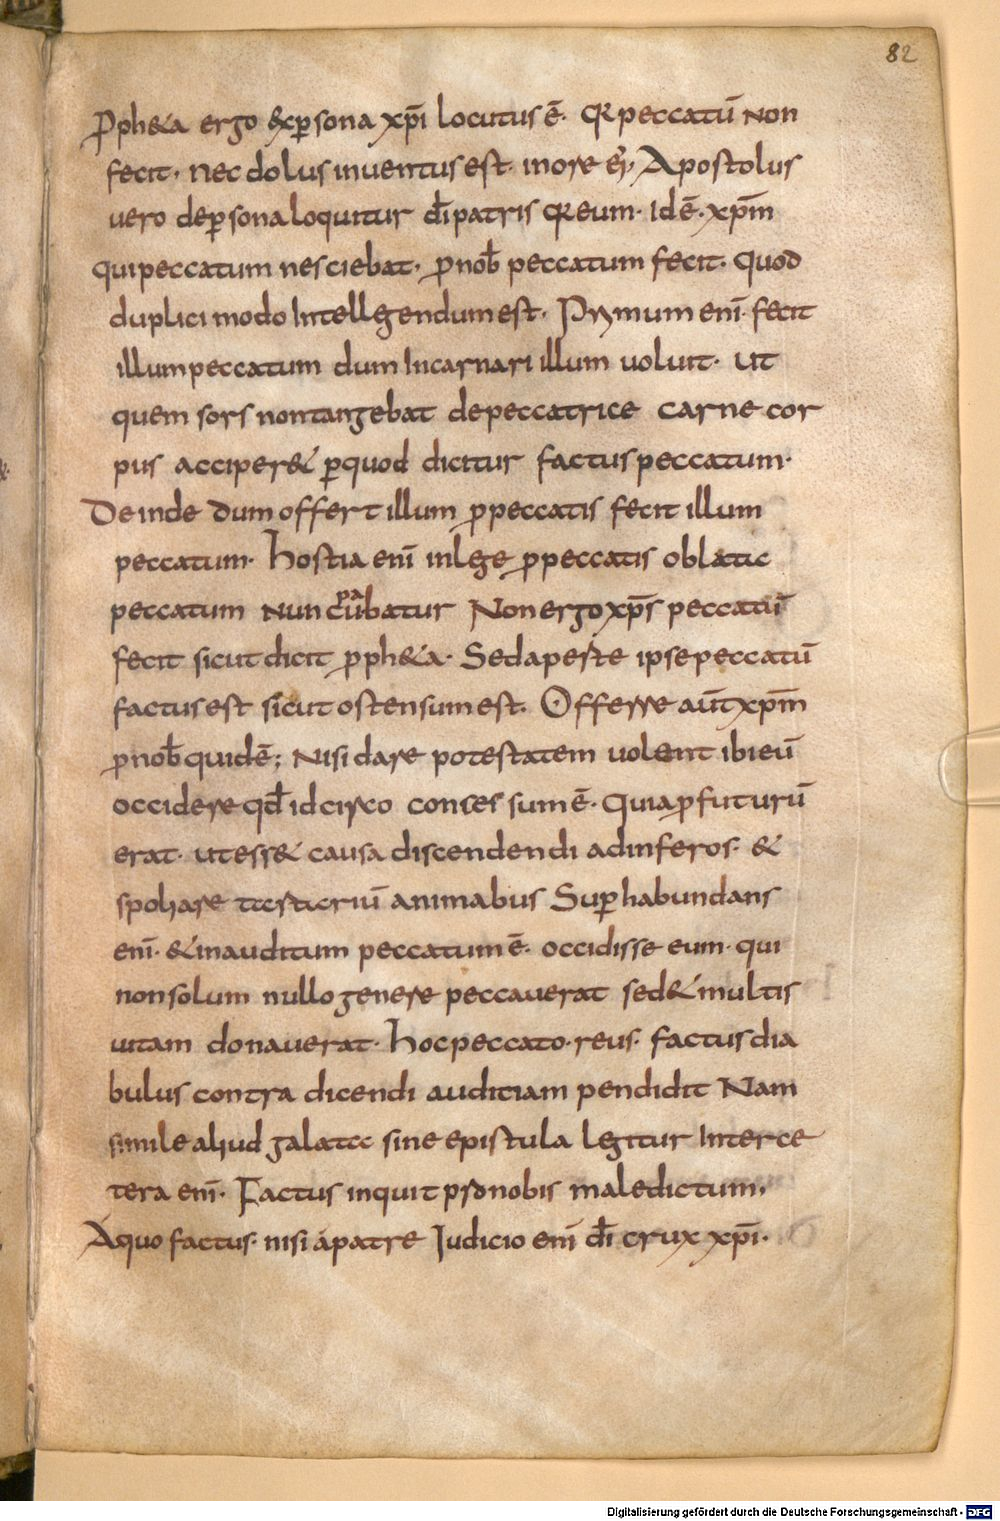 82
ꝓph&a ergo &xꝑsona xp̄i locutus ē· qꝛ peccatū non
fecit· nec dolus inuentus est· in ore ei᷒· Apostolus
uero de ꝑsona loquitur dī patris qꝛ eum· id ē· xp̄m
qui peccatum nesciebat· ꝓ nob̄ peccatum fecit· quod
duplici modo Intellegendum est· Prymum enī· fecit
illum peccatum dum Incarnari illum uoluit· ut
quem sors non tangebat de peccatrice carne cor
pus acciper& ꝑ quod dicitur factus peccatum·
De inde dum offert illum ꝓ peccatis fecit illum
peccatum· hostia enī in lege ꝓ peccatis oblatae
peccatum nuncupabatur Non ergo xp̄s peccatū
fecit sicut dicit ꝓph&a· Sed a patre ipse peccatū
factus est sicut ostensum est· Offerre aūt xp̄m
ꝓ nob̄ quid ē; Nisi dare potestatem uolent ibi eū
occidere qd̄ idcirco concessum ē· Quia ꝓfuturū
erat· ut ess& causa discendendi ad inferos· &
spoliare tartarū animabus Suꝑhabundans
enī· & inauditum peccatum ē· occidisse eum· qui
non solum nullo genere peccauerat sed & multis
uitam donauerat· hoc peccato· reus· factus dia
bulus contra dicendi auditiam pendidit Nam
simile aliud galatae sine epistula legitur Interce
tera enī· Factus inquit pro nobis maledictum,
A quo factus· nisi á patre Iudicio enī dī crux xp̄i·
Digitalisierung gefördert durch die Deutsche Forschungsgemeinschaft - DFG